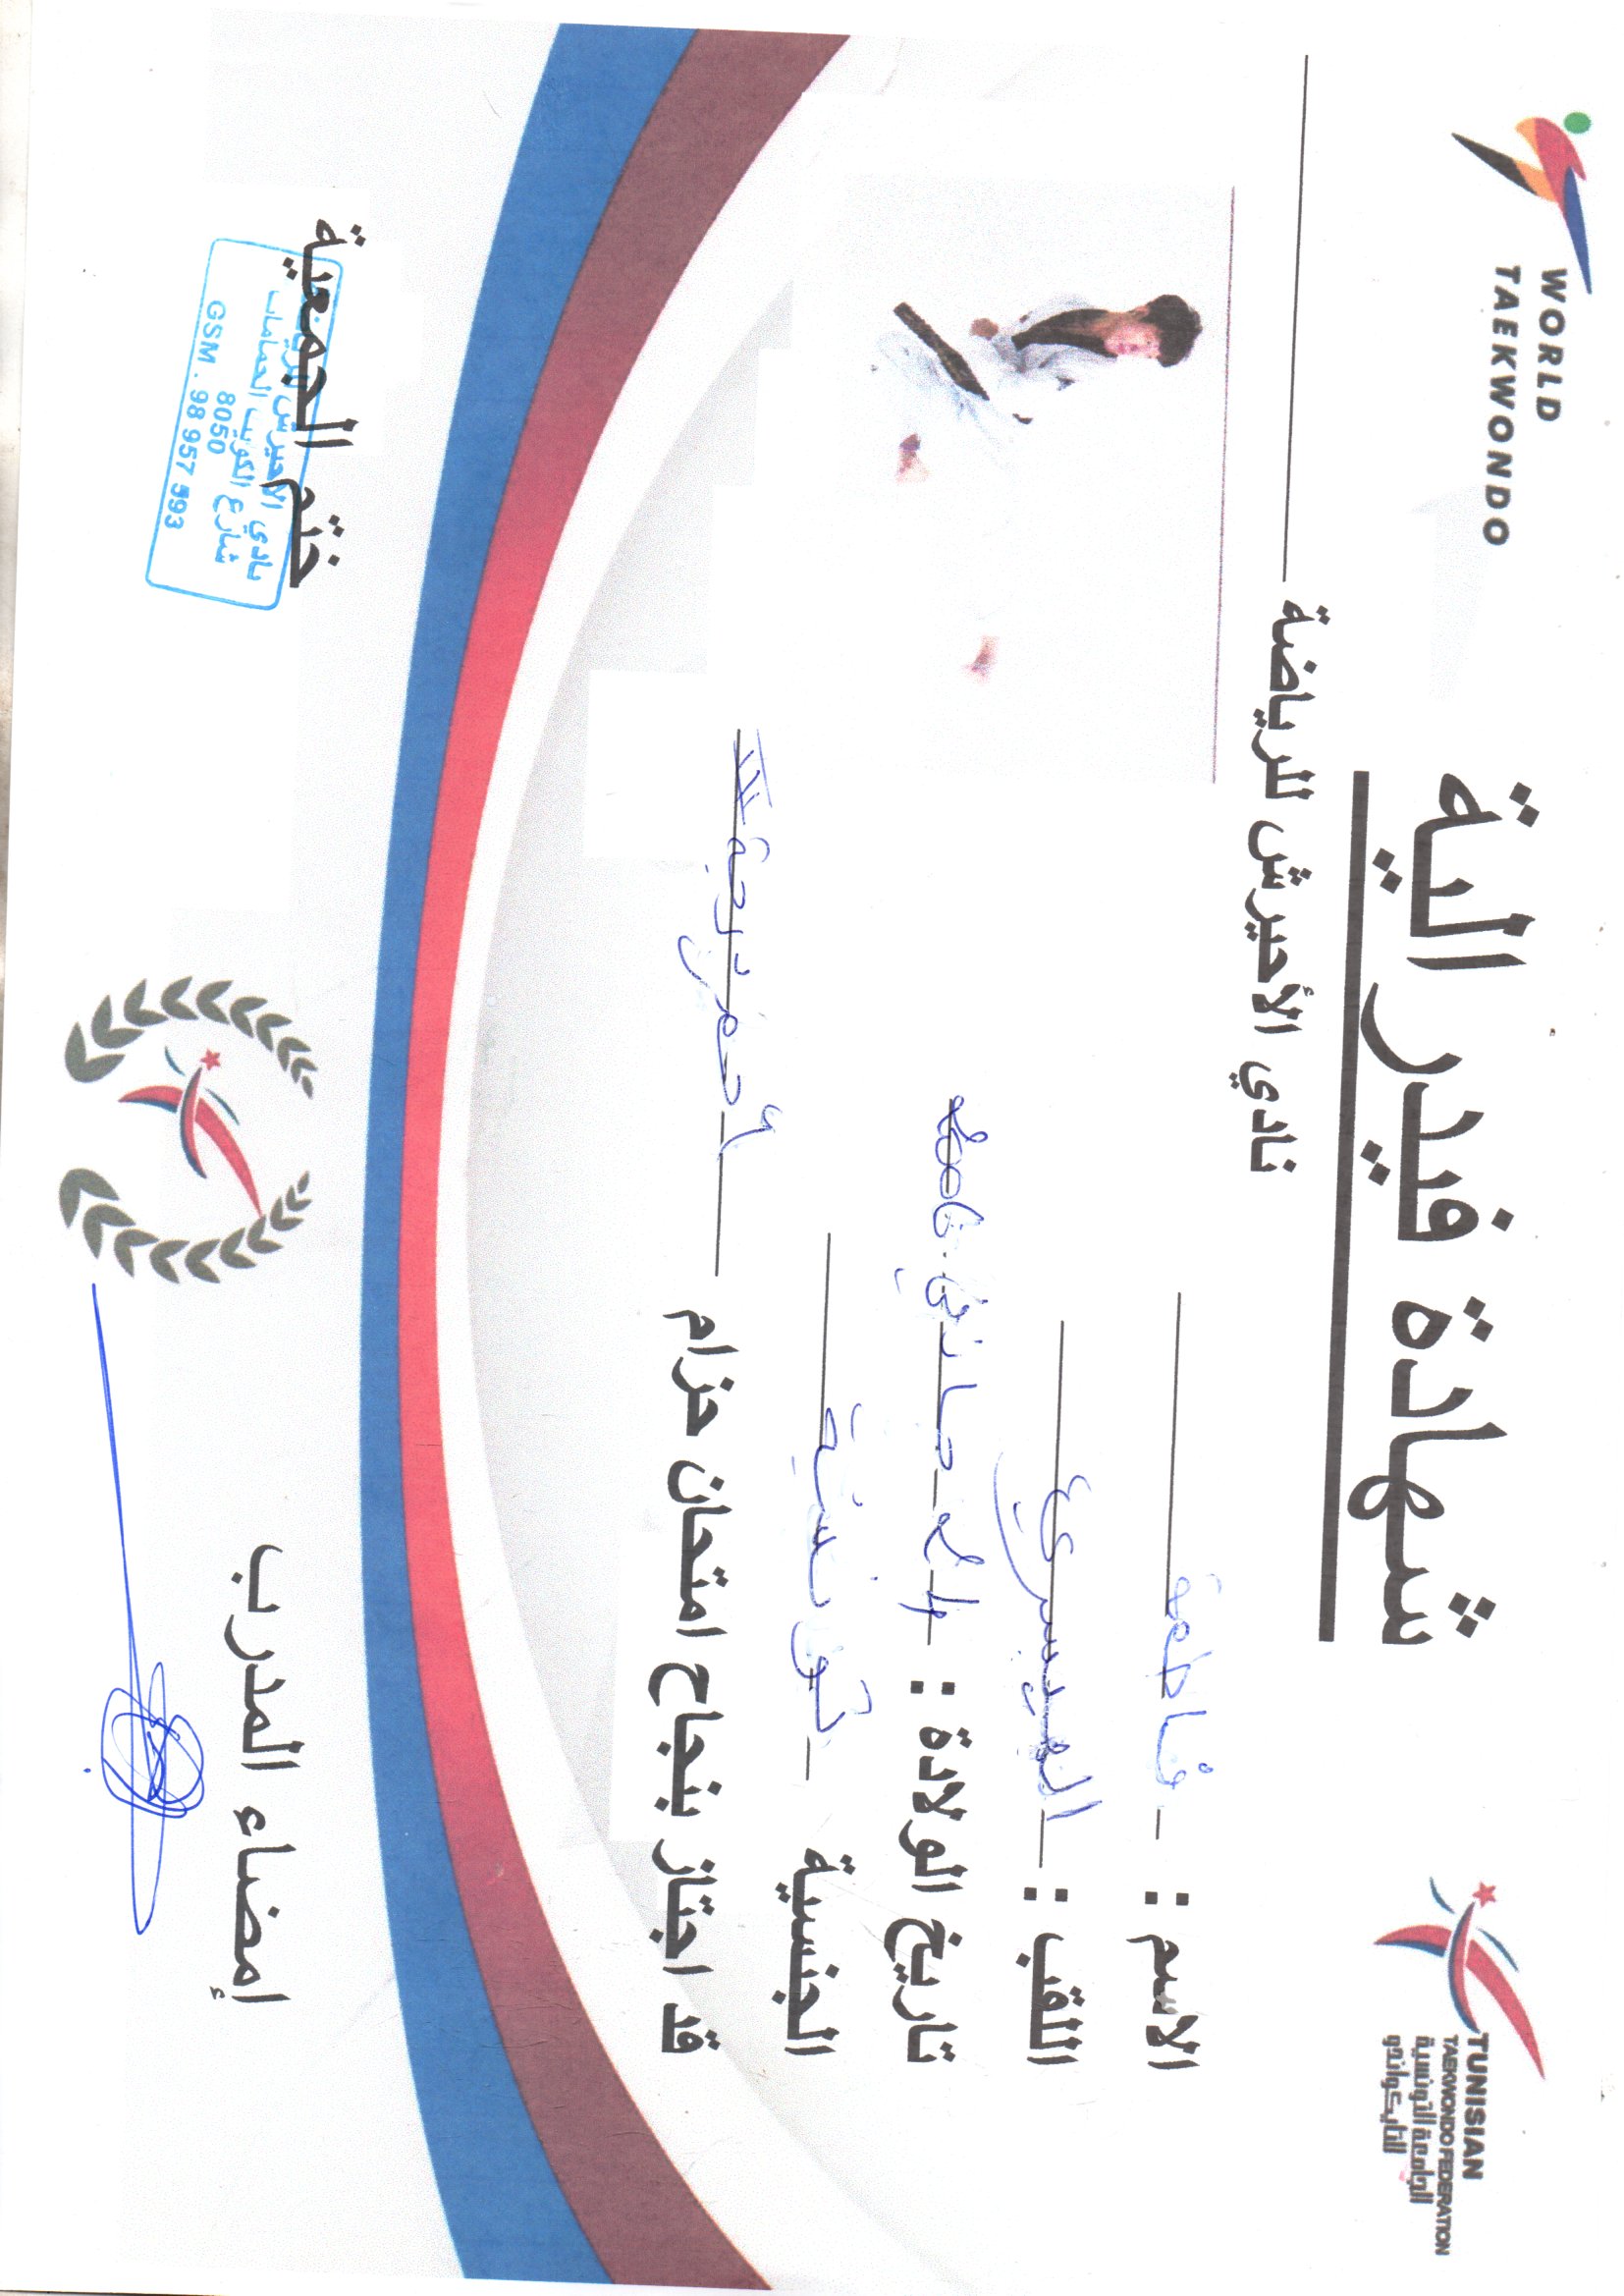 WORLD
TAEKWONDO
TUNISIAN
TAEKWONDO FEDERATION
الجامعة التونسية
للتايكواندو
شهادة فيدرالية
نادي الأحيرش للرياضة
الاسم : فاطمة
اللقب :
تاريخ الولادة : 14 جانفي
الجنسية تونسية
قد اجتاز بنجاح امتحان حزام أحمر درجة III
إمضاء المدرب
ختم الجمعية
نادي الأحيرش للرياضة
شارع الكويت الحمامات
8050
GSM . 98 957 593